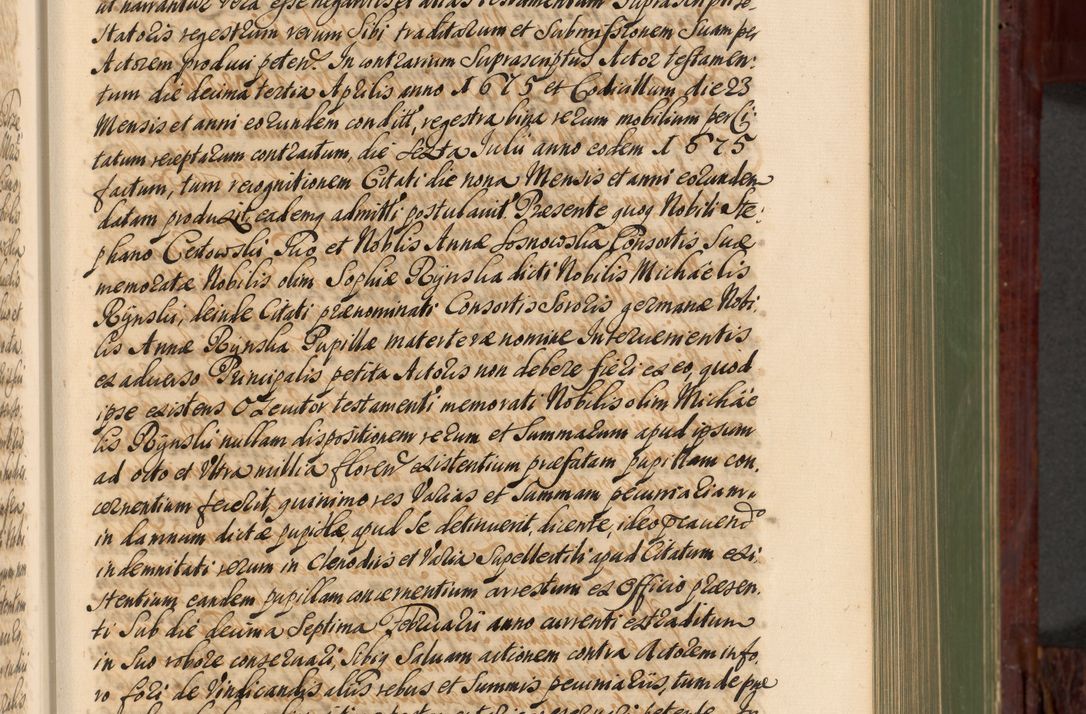 ut narrantur vera esse negantis et alias testamentum Suprascripti te
statoris regestrum rerum Sibi traditarum et Submissionem Suam per
Actorem produci peten. In contrarium Suprascriptus Actor testamen:
tum die decima tertia Aprilis anno 1675 et Codicillum die 23
Mensis et anni eorundem condit, regestra bina rerum mobilium per Ci:
tatum receptarum contractum, die Sexta Julii anno eodem 1675
factum, tum recognitionem Citati die nona Mensis et anni eorundem
datam produxit, eademq admitti postulavit. Presente quoq Nobili Ste:
phano Cerlowski Suo et Noblis Annæ Losnowska Consortis Suæ
memoratæ Nobilis olim Sophiæ Rÿnska dicti Nobilis Michaelis
Rÿnski, deinde Citati prænominati Consortis Sororis germanæ Nobi:
lis Annæ Rÿnska Pupillæ materteræ nomine Intervenientis
ex adverso Principalis petita Actoris non debere fieri ex eo, quod
ipse existens Executor testamenti memorati Nobilis olim Michæe
lis Rÿnski nullam dispositionem rerum et Summarum apud ipsum
ad octo et Vltra millia floren existentium præfatam pupillam con,
cernentium fecerit, quinimo res Varias et Summam pecuniariam
in damnum dictæ pupillæ, apud Se detinuerit, dicente, ideo præcavendo
indemnitati rerum in Clenodiis et Varia Supellectili apud Citatum exi:
stentium eandem pupillam concernentium arrestum ex Officio præsen,
ti Sub die decima Septima Februarii anno currenti extraditum
in Suo robore conservari, Sibiq Salvam actionem contra Actorem in fo,
ro fori de Vindicandis aliis rebus et Summis pecuniariis, tum de